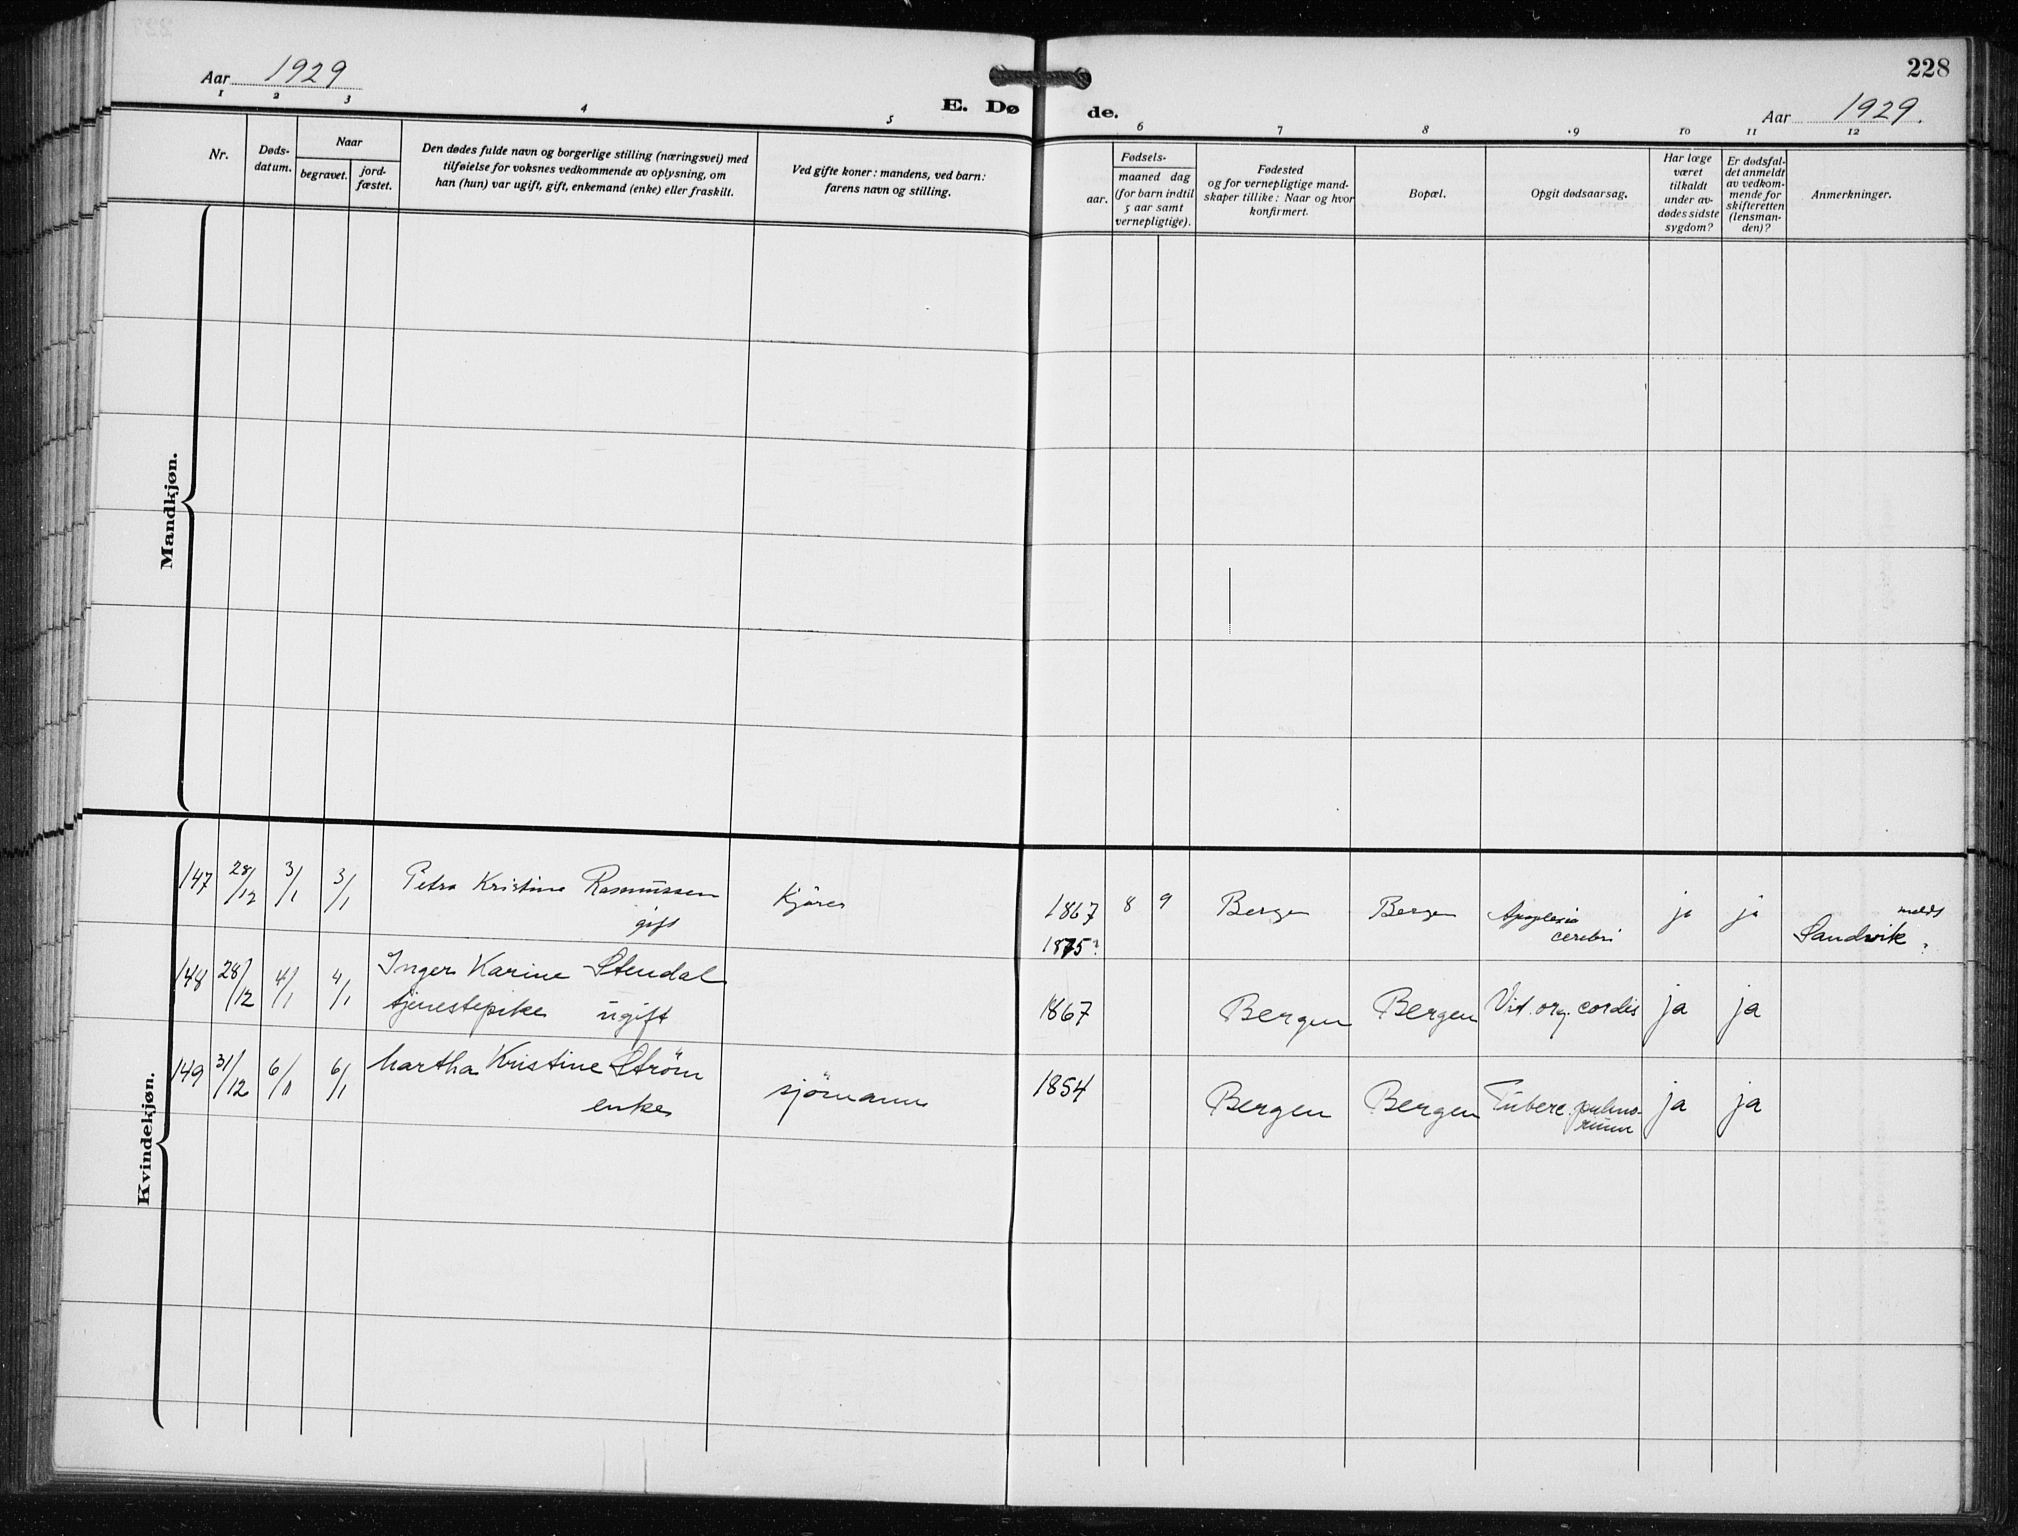 228
Aar 1929
E. Dø de.
Aar 1929.
1 2 3 4 5 6 7 8 9 10 11 12
Nr.
Døds-
datum.
Naar
begravet.
jord-
fæstet.
Den dødes fulde navn og borgerlige stilling (næringsvei) med
tilføielse for voksnes vedkommende av oplysning, om
han (hun) var ugift, gift, enkemand (enke) eller fraskilt.
Ved gifte koner: mandens, ved barn:
farens navn og stilling.
Fødsels-
aar.
maaned dag
(for barn indtil
5 aar samt
vernepligtige).
Fødested
og for vernepligtige mand-
skaper tillike: Naar og hvor
konfirmert.
Bopæl.
Opgit dødsaarsag.
Har læge
været
tilkaldt
under av-
dødes sidste
sygdom?
Er dødsfal-
det anmeldt
av vedkom-
mende for
skifteretten
(lensman-
den)?
Anmerkninger.
Mandkjøn.
Kvindekjøn.
147 28/12 3/1 3/1 Petra Kristine Rasmussen Kjører 1867 8 9 Bergen Bergen Apoplexia ja ja
gift 1875? cerebri Sandvik
148 28/12 4/1 4/1 Inger Karine Stendal
tjenestepike ugift 1867 Bergen Bergen Vit. org. cordis ja ja
149 31/12 6/1 6/1 Martha Kristine Strøm
enke sjømann 1854 Bergen Bergen Tuberc. pulmo-
rum ja ja